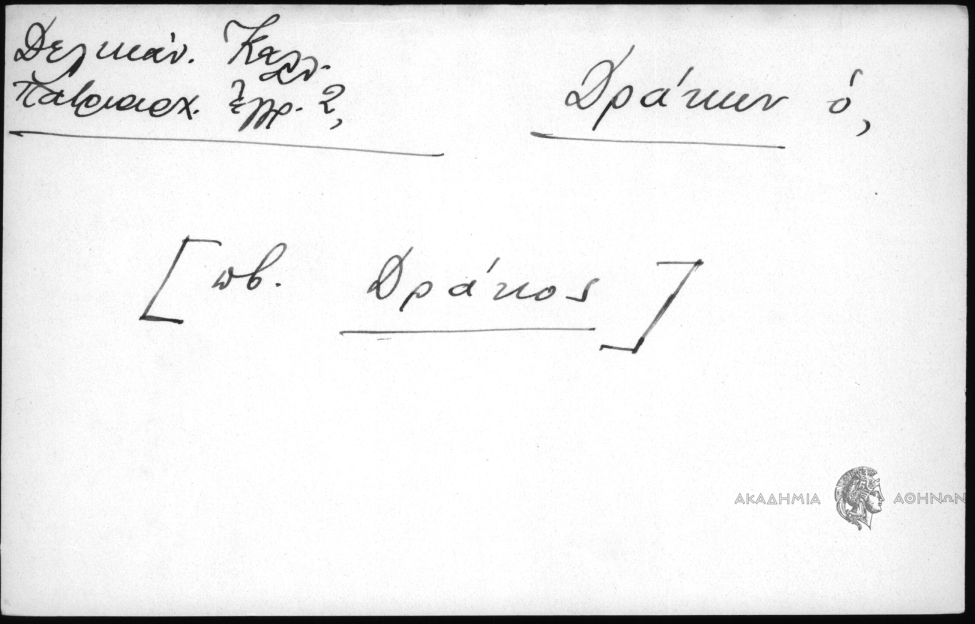 Δελικάν. Καλλ.
Πατριαρχ. ἔγγρ. 2,
Δράκων ὁ,
[πβ. Δράκος]
ΑΚΑΔΗΜΙΑ ΑΘΗΝΩΝ